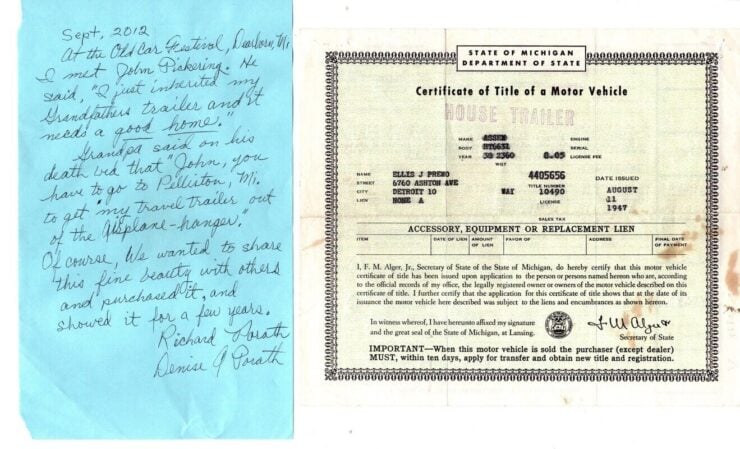 Sept, 2012
At the Old Car Festival, Dearborn, Mi
I met John Pickering. He
said, "I just inherited my
Grandfathers trailer and it
needs a good home."
Grandpa said on his
death bed that "John, you
have to go to Pellston, Mi.
to get my travel trailer out
of the Airplane-hanger."
Of course, We wanted to share
this fine beauty with others
and purchased it, and
showed it for a few years.
Richard Porath
Denise A Porath
STATE OF MICHIGAN
DEPARTMENT OF STATE
Certificate of Title of a Motor Vehicle
HOUSE TRAILER
MAKE ENGINE
BODY SERIAL
YEAR 38 2360 8.05 LICENSE FEE
WGT
NAME ELLIS J PREMO 4405656 DATE ISSUED
STREET 6760 ASHTON AVE TITLE NUMBER
CITY DETROIT 10 WAY 10490 AUGUST
LIEN NONE A LICENSE 11
1947
SALES TAX
ACCESSORY, EQUIPMENT OR REPLACEMENT LIEN
ITEM DATE OF LIEN AMOUNT OF LIEN FAVOR OF ADDRESS FINAL DATE OF PAYMENT
I, F. M. Alger, Jr., Secretary of State of the State of Michigan, do hereby certify that this motor vehicle
certificate of title has been issued upon application to the person or persons named hereon who are, according to
the official records of my office, the legally registered owner or owners of the motor vehicle described on this
certificate of title. I further certify that the application for this certificate of title shows that at the date of its
issuance the motor vehicle here described was subject to the liens and encumbrances as shown hereon.
In witness whereof, I have hereunto affixed my signature
and the great seal of the State of Michigan, at Lansing.
F M Alger Jr
Secretary of State
IMPORTANT—When this motor vehicle is sold the purchaser (except dealer)
MUST, within ten days, apply for transfer and obtain new title and registration.